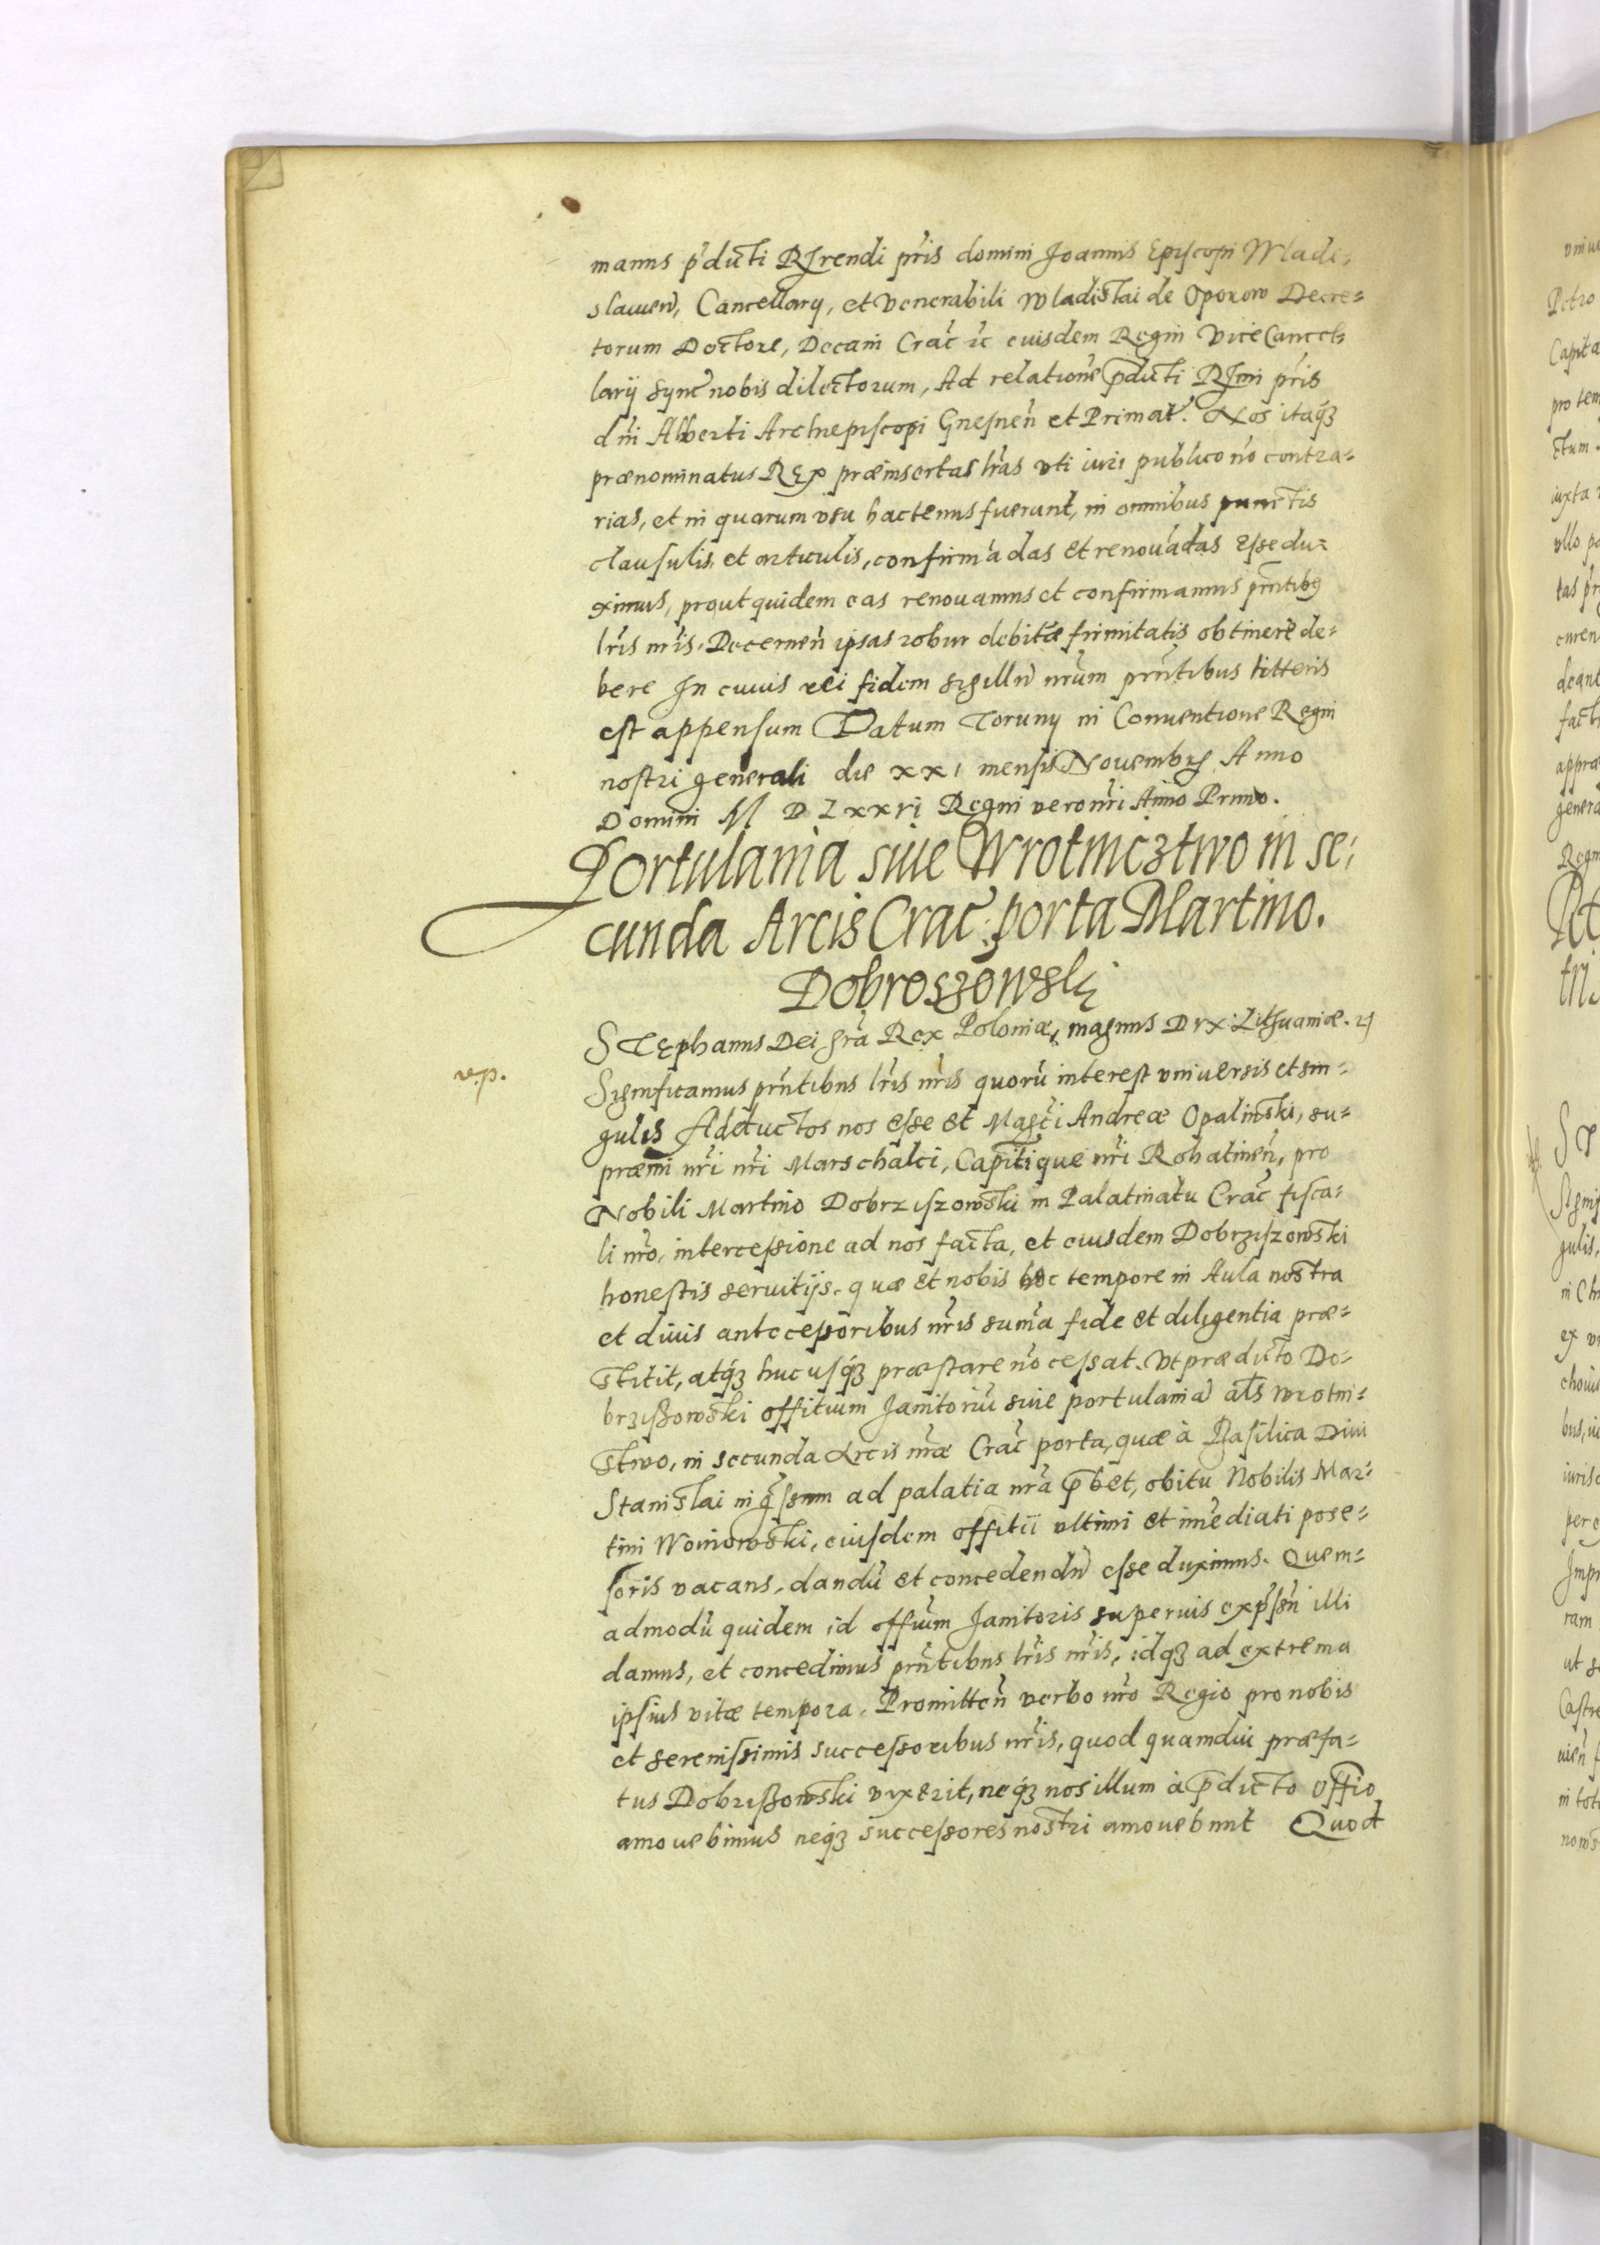 manus p̃ducti R͂srendi pr̃is domini Joannis Episcopi Wladi-
slauieñ, Cancellarij, et venerabili Wladislai de Oporow Decre-
torum Doctore, Decani Crac̃ ꝛc eiusdem Regni Vice Cancel-
larij sync̃ nobis dilectorum, Ad relationẽ p̃ducti R͂smi pr̃is
dñi Alberti Archiepiscopi Gnesneñ et Primat̃. Nos itaqʒ
prænominatus Rex præinsertas lr̃as vti iuri publico nõ contra-
rias, et in quorum vsu hactenus fuerunt, in omnibus punctis
clausulis, et articulis, confirmãdas et renouãdas esse du-
ximus, prout quidem eas renouamus et confirmamus prñtibꝰ
lr̃is nr̃is. Decerneñ ipsas robur debitæ firmitatis obtinere de-
bere In cuius rei fidem sigillũ nr̃um prñtibus litteris
est appensum Datum Toruny in Conuentione Regni
nostri generali die xxi mensis Nouembrꝭ Anno
Domini M D Lxxvi Regni vero nr̃i Anno Primo.
Portulania siue Wrotnicztwo in se-
cunda Arcis Crac̃: porta Martino.
Dobroszowski
v.p.
Stephanus Dei gr̃a Rex Poloniæ, magnus Dvx Lithuaniæ. ꝛc
Significamus prñtibus lr̃is nr̃is quorũ interest vniuersis et sin-
gulis Adductos nos esse et Magc̃i Andreæ Opalinski, su-
præmi nr̃i nr̃i Marschalci, Capitĩque nr̃i Rohatineñ, pro
Nobili Martino Dobrziszowski in Palatinatu Crac̃ fisca-
li nr̃o, intercessione ad nos facta, et eiusdem Dobrziszowski
honestis seruitijs, quæ et nobis hoc tempore in Aula nostra
et diuis antecessoribus nr̃is sum̃a fide et diligentia præ-
stitit, atqʒ hucusqʒ præstare nõ cessat. Vt prædicto Do-
brzißowski offitium Janitoriũ siue portulaniã al̃s wrotni-
ctwo, in secunda Arcis nr̃æ Crac̃ porta, quæ à Basilica Diui
Stanislai ingr̃ssum ad palatia nr̃a p̃bet, obitu Nobilis Mar-
tini Woinowski, eiusdem offitii vltimi et im̃ediati posse-
soris vacans, dandũ et concedendũ esse duximus. Quem-
admodũ quidem id offiũm Janitoris superius exp̃ssũ illi
damus, et concedimus prñtibus lr̃is nr̃is, idqʒ ad extrema
ipsius vitæ tempora. Promitteñ verbo nr̃o Regio pro nobis
et serenissimis successoribus nr̃is, quod quamdiu præfa-
tus Dobrzißowski vixerit, neqʒ nos illum à p̃dicto offĩo
amouebimus neqʒ successores nostri amouebunt Quod